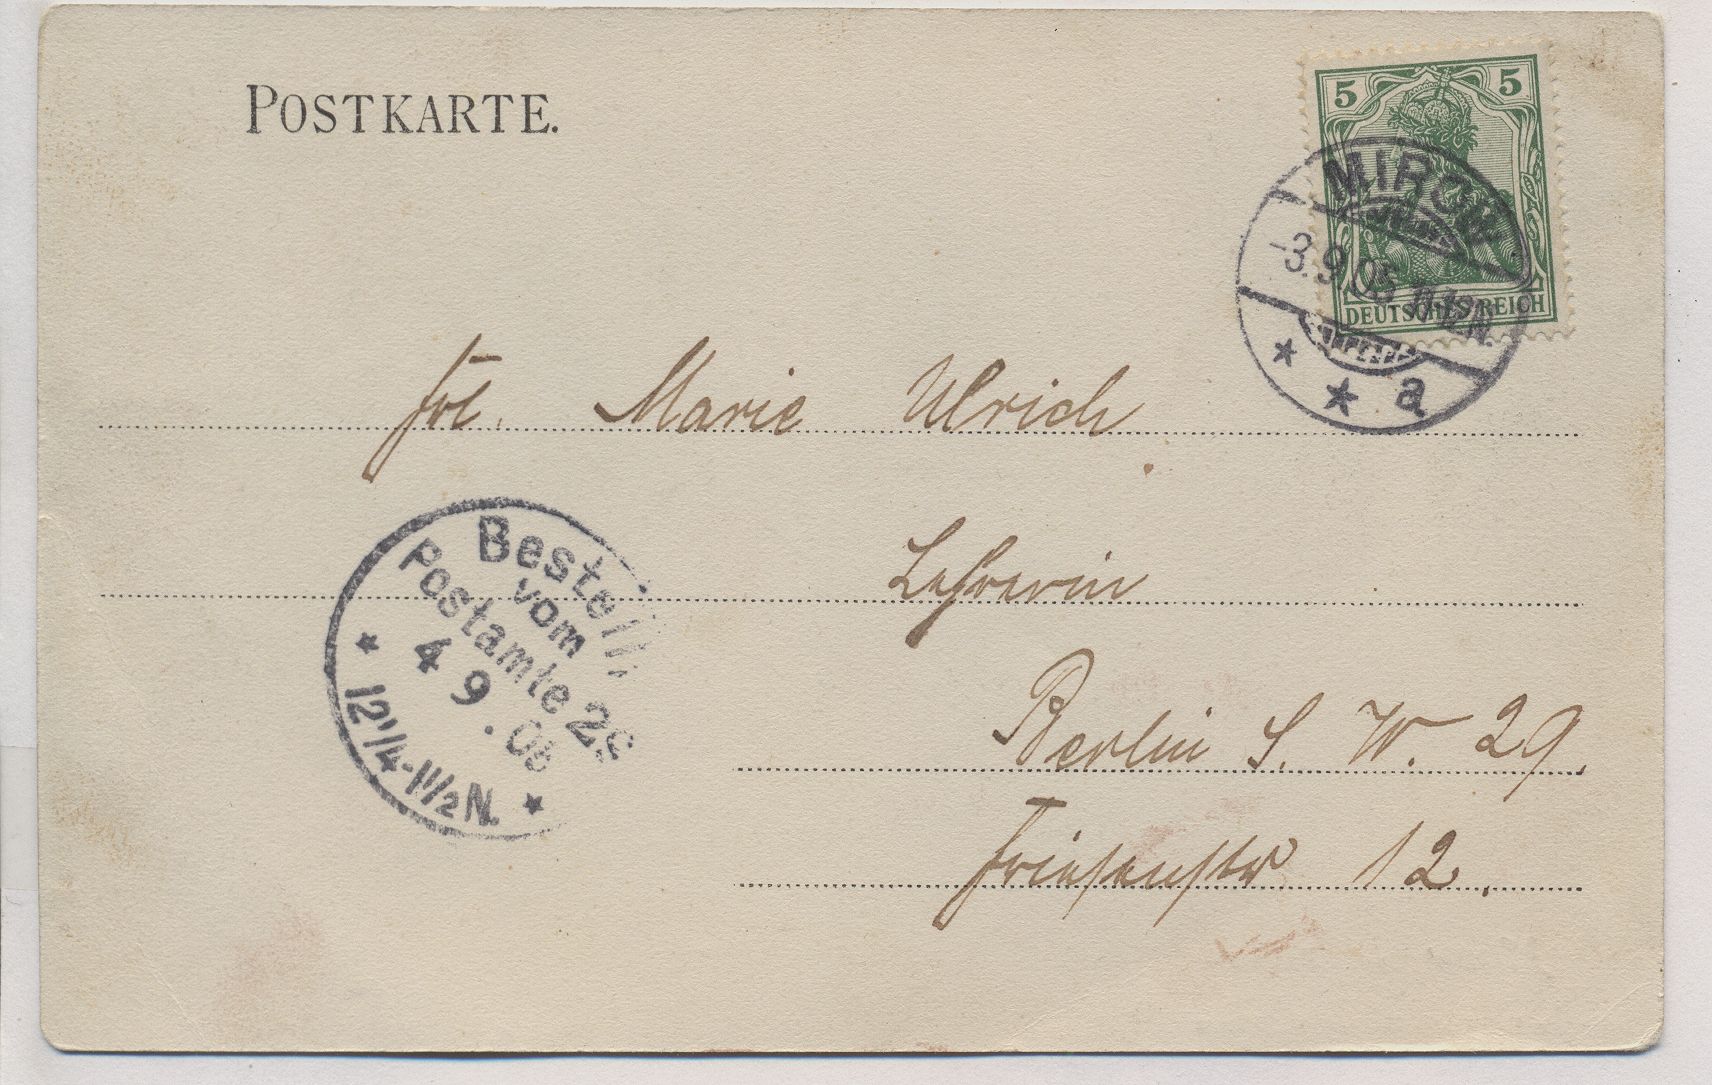 POSTKARTE.
5 5
DEUTSCHES REICH
MIROW
-3.9.05 11-12N.
* * a
Frl. Marie Ulrich
Lehrerin
Berlin S. W. 29.
Friesenstr 12.
Bestellt
vom
Postamte 29
4 9.05
* 12 1/4-1 1/2 N. *